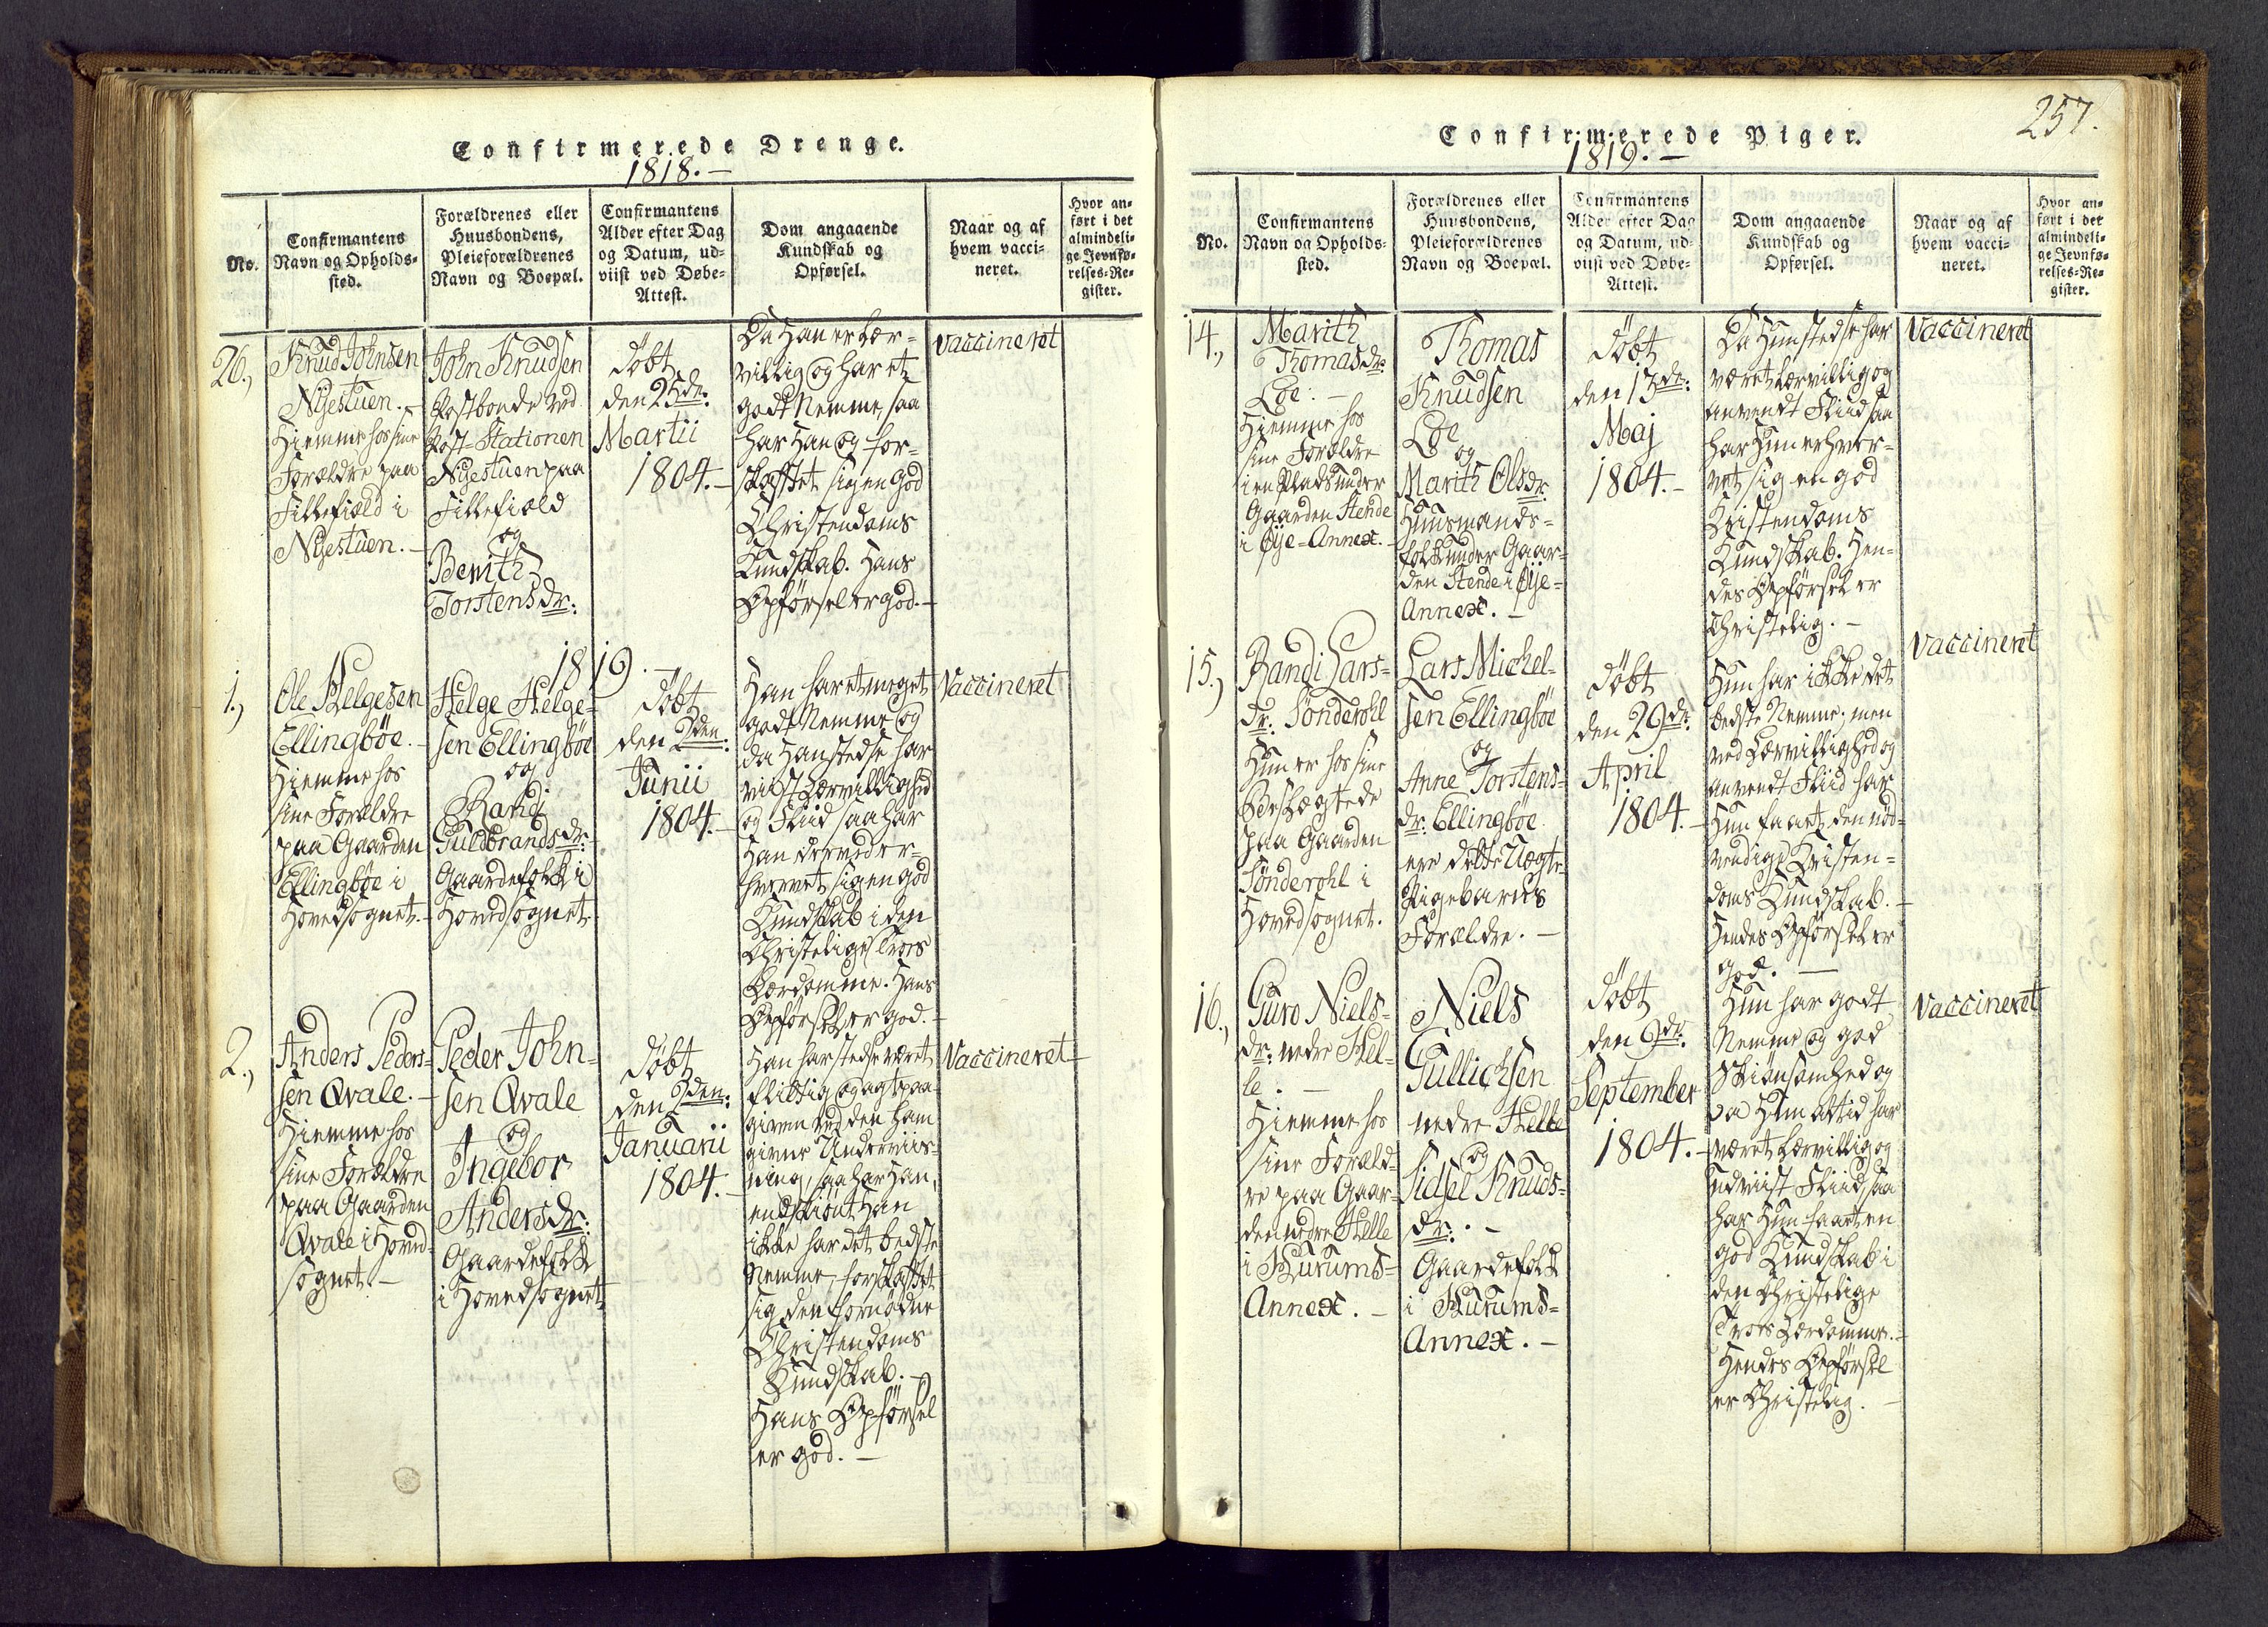 Confirmerede Drenge.
1818. –
No.
Confirmantens
Navn og Opholds-
sted.
Forældrenes eller
Huusbondens,
Pleieforældrenes
Navn og Boepæl.
Confirmantens
Alder efter Dag
og Datum, ud-
viist ved Døbe-
Attest.
Dom angaaende
Kundskab og
Opførsel.
Naar og af
hvem vacci-
neret.
Hvor an-
ført i det
almindeli-
ge Jevnfø-
relses-Re-
gister.
26.,
Knud Johnsen
Nÿestuen. –
Hiemme hos sine
Forældre paa
Fillefiæld i
Nÿestuen. –
John Knudsen
Postbonde ved
Post-Stationen
Nÿestuen paa
Fillefiæld
og
Berith
Torstensdr:
döbt
den 25de:
Martii
1804. –
Da Han er Lær-
villig og har et
godt Nemme, saa
har Han og for-
skaffet sig en God
Christendoms
Kundskab. Hans
Opførsel er god. –
Vaccineret
1819. –
1.,
Ole Helgesen
Ellingböe. –
Hiemme hos
sine Forældre
paa Gaarden
Ellingböe i
Hovedsognet. –
Helge Helge-
sen Ellingböe
og
Randi
Guldbrandsdr:
Gaardefolk i
Hovedsognet.
döbt
den 2den:
Junii
1804. –
Han har et meget
godt Nemme og
da Han stedse har
viist Lærvillighed
og Fliid saa har
Han derved er-
hvervet sig en god
Kundskab i den
Christelige Troes
Lærdomme. Hans
Opførsel er god. –
Vaccineret
2.,
Anders Peders-
sen Qvale. –
Hiemme hos
sine Forældre
paa Gaarden
Qvale i Hoved-
sognet. –
Peder John-
sen Qvale
og
Ingebor
Andersdr:
Gaardefolk
i Hovedsognet.
döbt
den 2den:
Januarii
1804. –
Han har stedse været
flittig og agtpaa-
given ved den ham
givne Underviis-
ning, saa har Han,
endskiönt Han
ikke har det bedste
Nemme, forskaffet
sig den fornødne
Christendoms
Kundskab. –
Hans Opförsel
er god. –
Vaccineret
257.
Confirmerede Piger.
1819. –
No.
Confirmantens
Navn og Opholds-
sted.
Forældrenes eller
Huusbondens,
Pleieforældrenes
Navn og Boepæl.
Confirmantens
Alder efter Dag
og Datum, ud-
viist ved Døbe-
Attest.
Dom angaaende
Kundskab og
Opførsel.
Naar og af
hvem vacci-
neret.
Hvor an-
ført i det
almindeli-
ge Jevnfø-
relses-Re-
gister.
14.,
Marith
Thomasdr:
Löe. –
Hiemme hos
sine Forældre
i en Plads under
Gaarden Stende
i Öÿe-Annex. –
Thomas
Knudsen
Löe
og
Marith Olsdr.
Huusmands-
folk under Gaar-
den Stende i Öÿe-
Annex. –
döbt
den 13de:
Maj
1804. –
Da Hun stedse har
været Lærvillig og
anvendt Fliid saa
har Hun erhver-
vet sig en god
Kristendoms
Kundskab. Hen-
des Opförsel er
Christelig. –
Vaccineret
15.,
Randi Lars-
dr: Sönderohl
Hun er hos sine
Beslægtede
paa Gaarden
Sönderohl i
Hovedsognet.
Lars Michel-
sen Ellingböe
og
Anne Torstens-
dr: Ellingböe
ere dette Uægte
Pigebarns
Forældre. –
döbt
den 29de:
April
1804. –
Hun har ikke det
bedste Nemme; men
ved Lærvillighed og
anvendt Fliid har
Hun faaet den nöd-
vendige Kristen-
doms Kundskab. –
Hendes Opförsel er
god. –
Vaccineret
16.,
Guro Niels-
dr: nedre Hel-
le. –
Hiemme hos
sine Foræld-
re paa Gaar-
den nedre Helle
i Hurums-
Annex. –
Niels
Gullichsen
nedre Helle
og
Sidsel Knuds-
dr: –
Gaardefolk
i Hurums-
Annex. –
döbt
den 9de:
September
1804. –
Hun har godt
Nemme og god
Skiönsomhed og
da Hun altid har
været Lærvillig og
udviist Fliid, saa
har Hun faaet en
god Kundskab i
den Christelige
Troes Lærdomme. –
Hendes Opförsel
er Christelig. –
Vaccineret